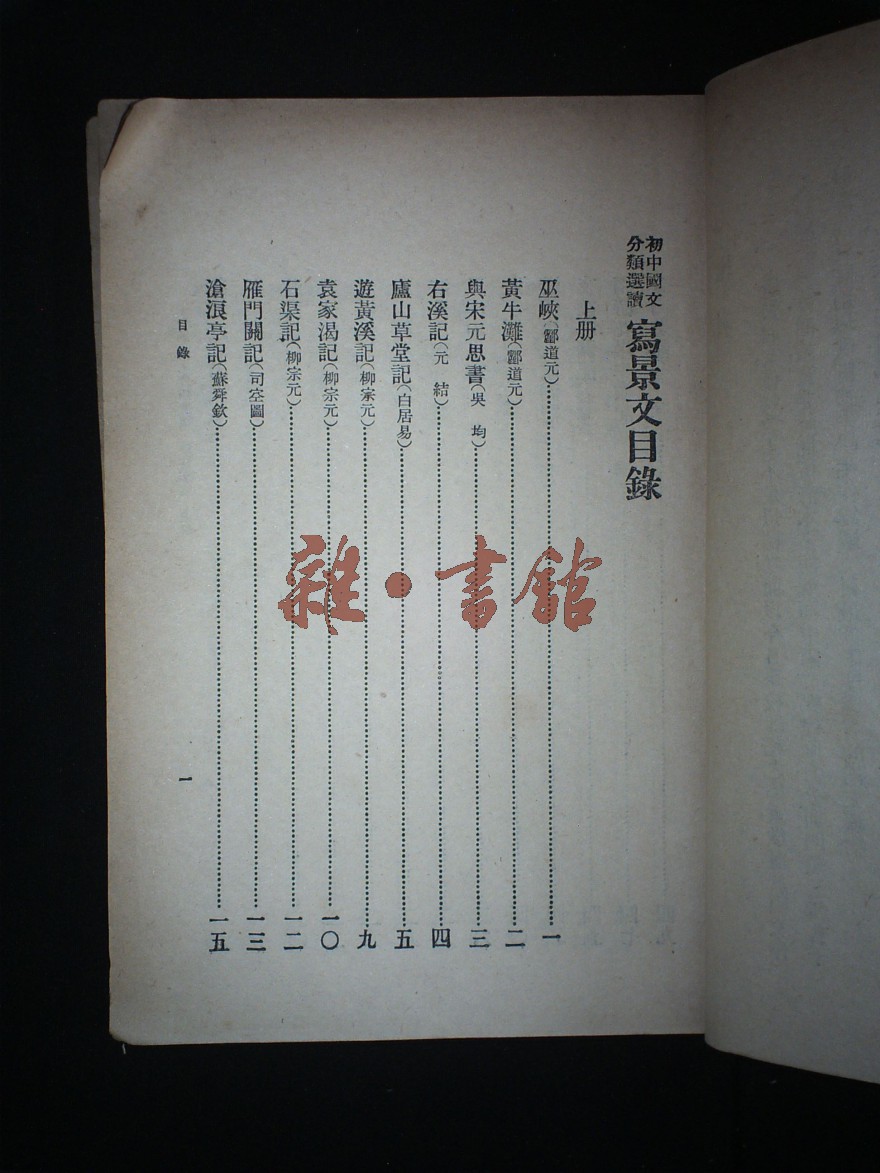 初中國文
分類選讀
寫景文目錄
上册
巫峽(酈道元)……一
黃牛灘(酈道元)……二
與宋元思書(吳 均)……三
右溪記(元 結)……四
廬山草堂記(白居易)……五
遊黃溪記(柳宗元)……九
袁家渴記(柳宗元)……一〇
石渠記(柳宗元)……一二
雁門關記(司空圖)……一三
滄浪亭記(蘇舜欽)……一五
目錄
一
雜·書館